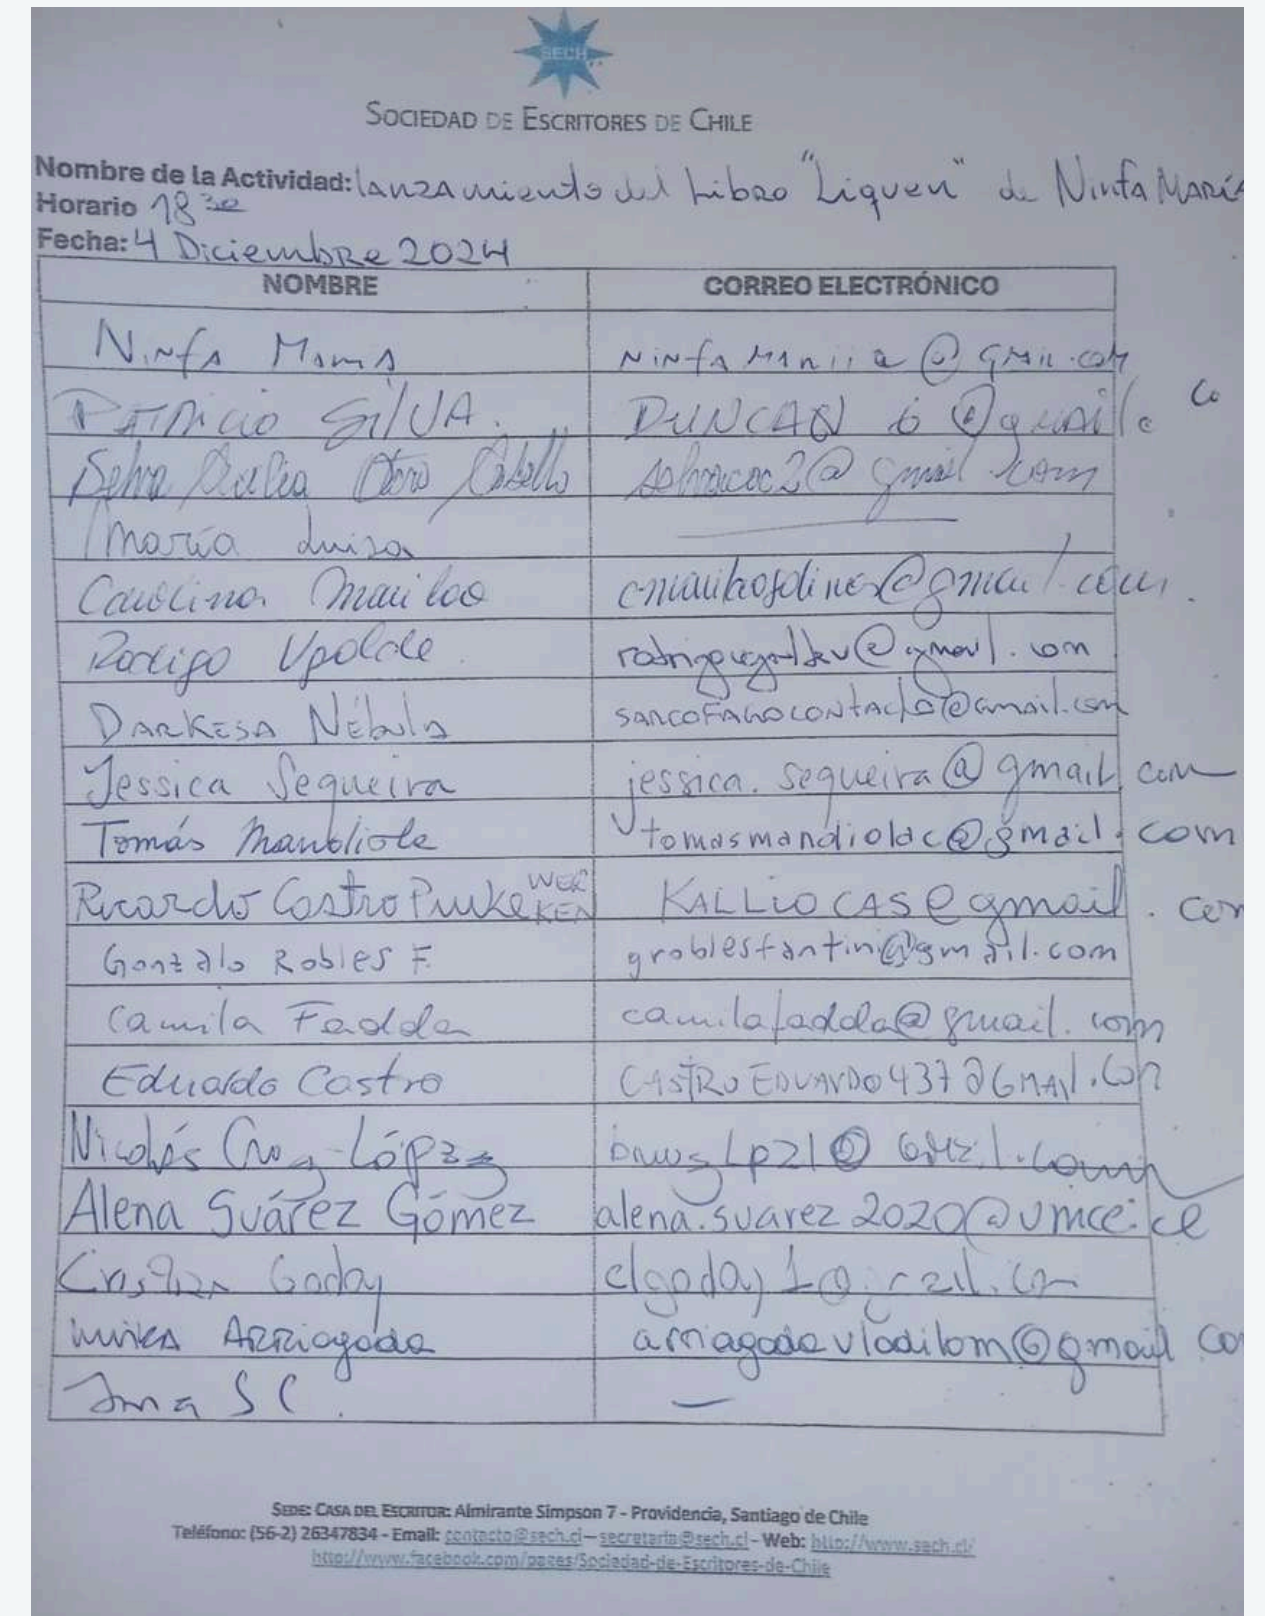 SECH
SOCIEDAD DE ESCRITORES DE CHILE
Nombre de la Actividad: lanzamiento del Libro "Liquen" de Ninfa María
Horario 18:30
Fecha: 4 Diciembre 2024
NOMBRE CORREO ELECTRÓNICO
Ninfa María
Patricio Silva. DUNCAN 6 @gmail.co
María Luisa —
Carolina
Rodrigo Ugalde
DARKESA NÉbulA SARCOFAGOCONTACTO@gmail.com
Jessica Sequeira jessica.sequeira@gmail.com
Tomás Mandiola tomasmandiolac@gmail.com
Ricardo Castro KALLIOCAS@gmail.com
Gonzalo Robles F. groblesfantini@gmail.com
Camila Fadda camilafadda@gmail.com
Eduardo Castro CASTROEDUARDO437@GMAIl.Com
Nicolás Cruz López
Alena Suárez Gómez alena.suarez2020@umce.cl
Cristian Godoy
Arriagada arriagadavladilom@gmail.co
SEDE: CASA DEL ESCRITOR: Almirante Simpson 7 - Providencia, Santiago de Chile
Teléfono: (56-2) 26347834 - Email: contacto@sech.cl – secretaria@sech.cl - Web: http://www.sech.cl/
http://www.facebook.com/pages/Sociedad-de-Escritores-de-Chile